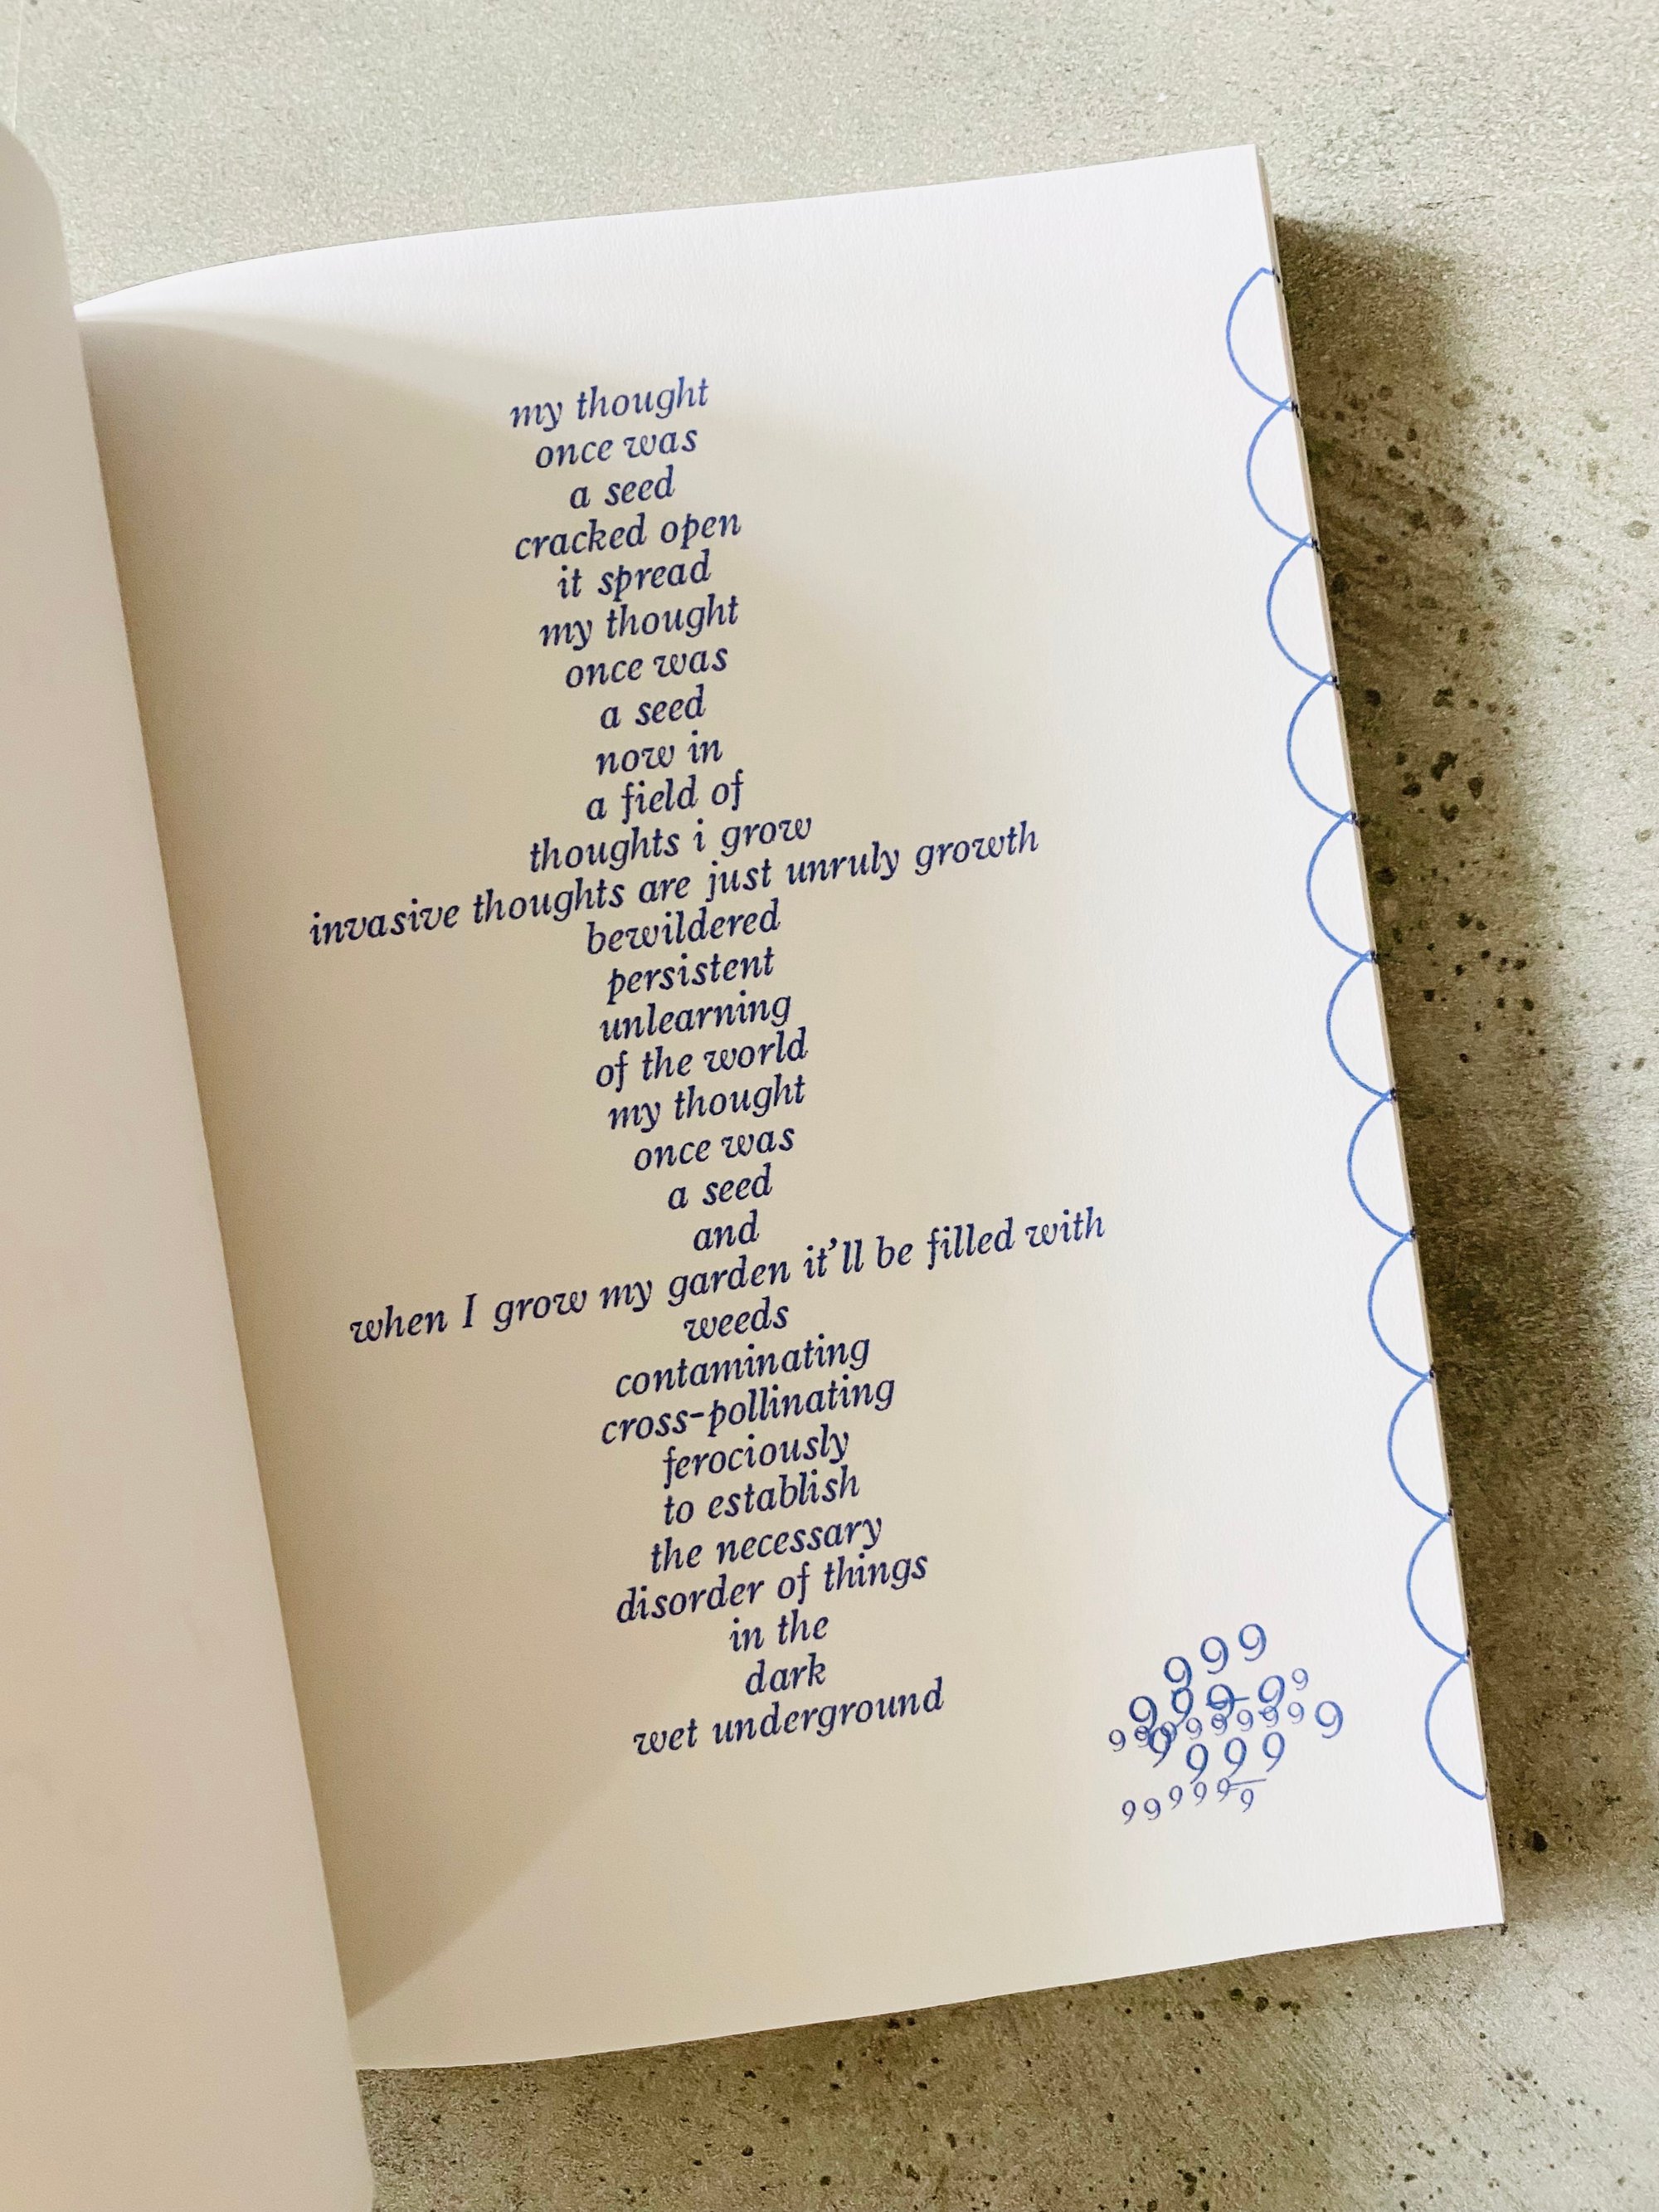 my thought
once was
a seed
cracked open
it spread
my thought
once was
a seed
now in
a field of
thoughts i grow
invasive thoughts are just unruly growth
bewildered
persistent
unlearning
of the world
my thought
once was
a seed
and
when I grow my garden it’ll be filled with
weeds
contaminating
cross-pollinating
ferociously
to establish
the necessary
disorder of things
in the
dark
wet underground